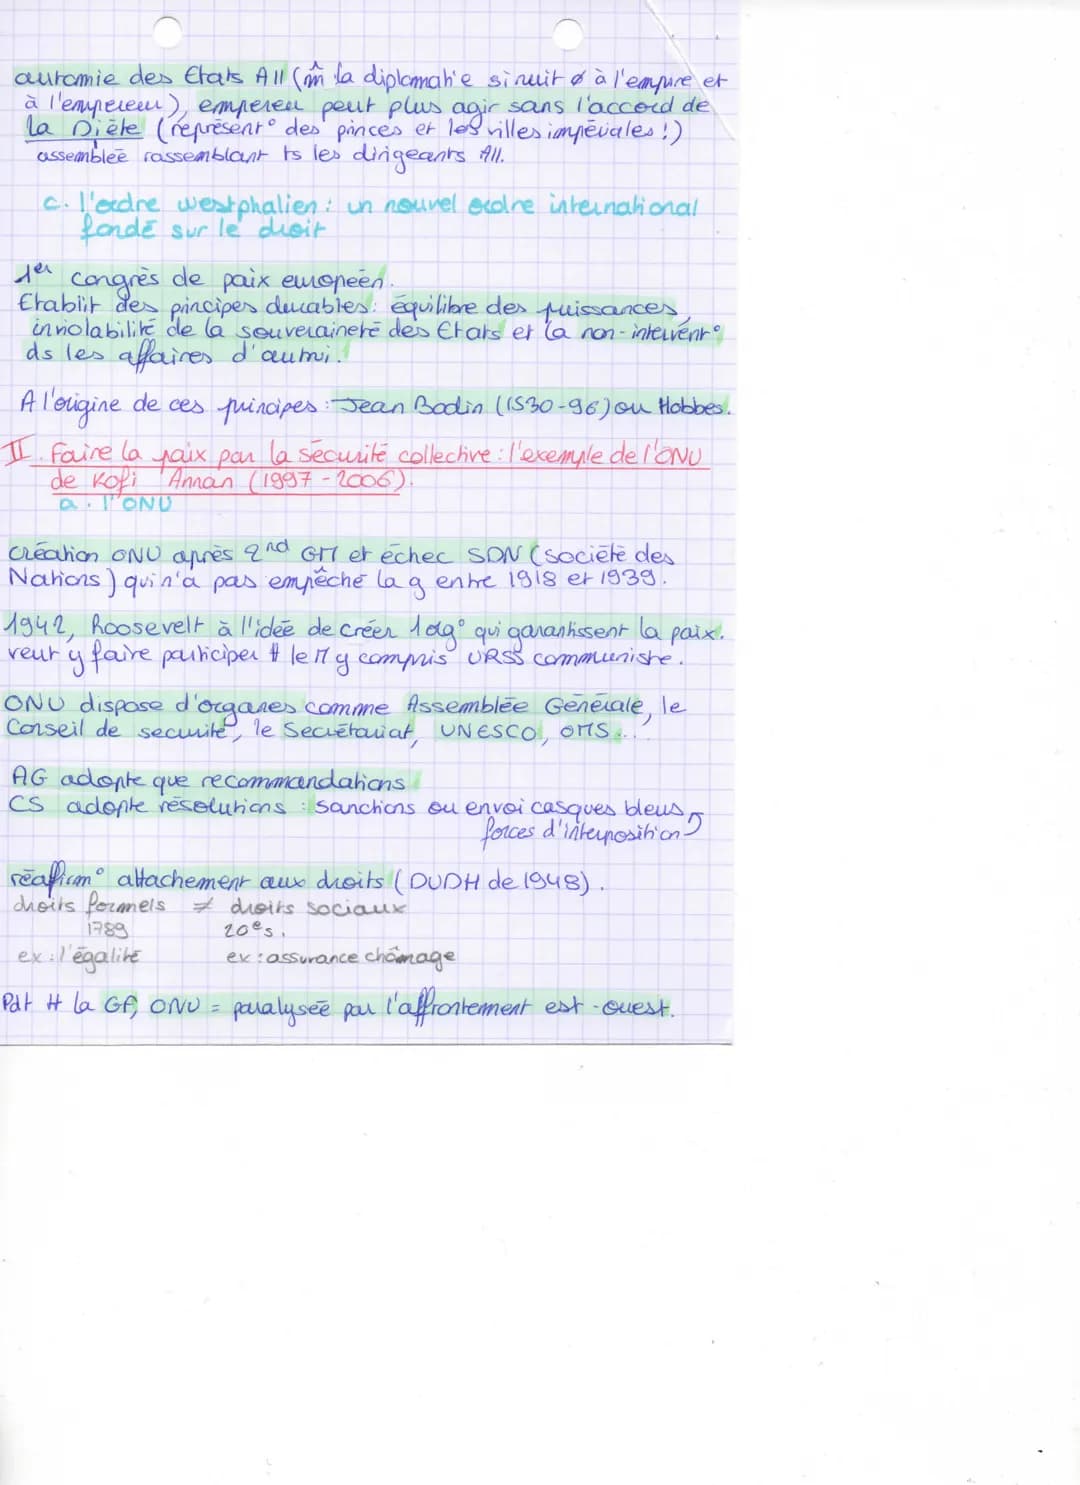 autonomie des Etats All (m̂ la diplomatie si nuit ø à l'empire et
à l'empereur), empereur peut plus agir sans l'accord de
la Diète (représent° des princes et les villes impériales !)
assemblée rassemblant ts les dirigeants All.
c. l'ordre westphalien : un nouvel ordre international
fondé sur le droit
1er congrès de paix européen.
Etablit des principes durables : équilibre des puissances,
inviolabilité de la souveraineté des Etats et la non-intervent°
ds les affaires d'autrui.
A l'origine de ces principes : Jean Bodin (1530-96) ou Hobbes.
II. Faire la paix par la sécurité collective : l'exemple de l'ONU
de Kofi Annan (1997-2006).
a. l'ONU
création ONU après 2nd GM et échec SDN (Société des
Nations) qui n'a pas empêché la g entre 1918 et 1939.
1942, Roosevelt à l'idée de créer 1 org° qui garantissent la paix.
veut y faire participer # le M y compris URSS communiste.
ONU dispose d'organes comme Assemblée Générale, le
Conseil de sécurité, le Secrétariat, UNESCO, OMS...
AG adopte que recommandations
CS adopte résolutions : sanctions ou envoi casques bleus
forces d'interposition
réaffirm° attachement aux droits (DUDH de 1948).
droits formels ≠ droits sociaux
1789 20e s.
ex : l'égalité ex : assurance chômage
Pdt # la GF, ONU = paralysée par l'affrontement est-ouest.